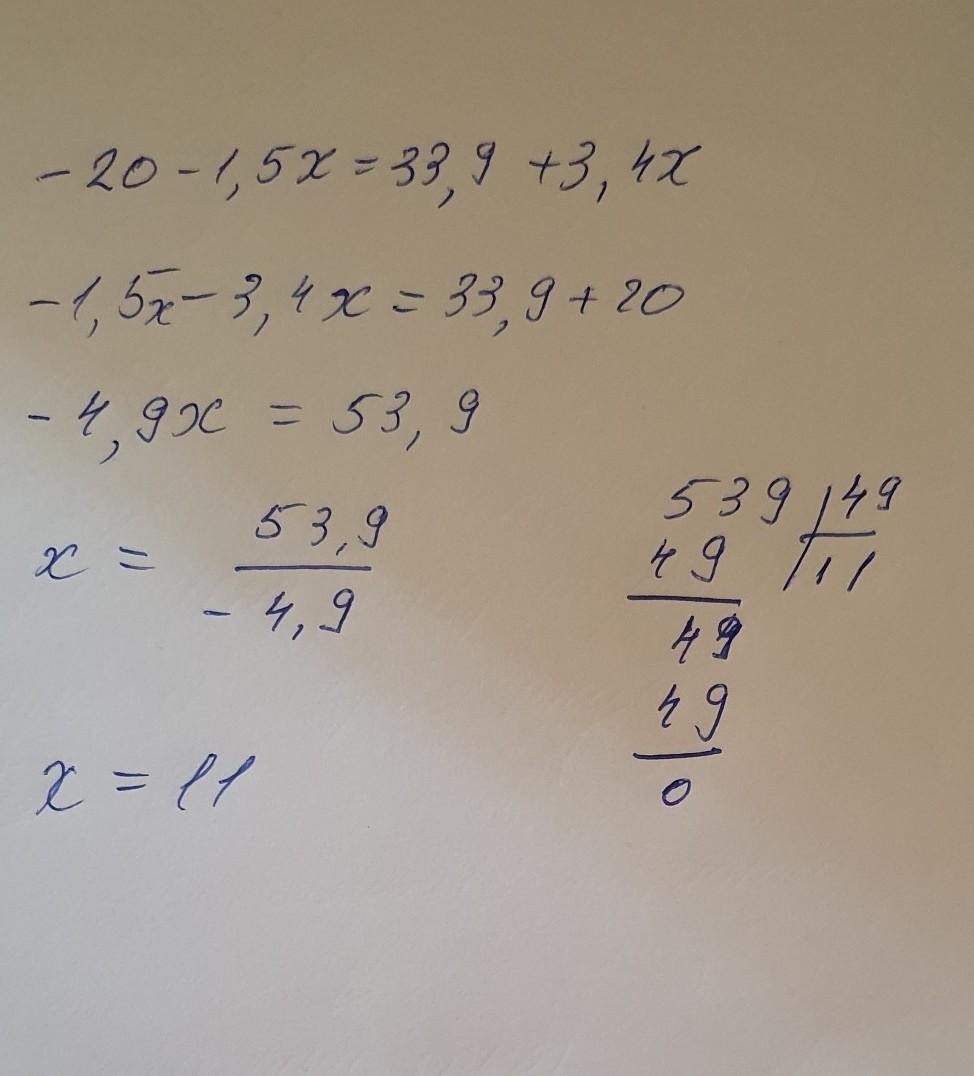 -20-1,5x=33,9+3,4x
-1,5x-3,4x=33,9+20
-4,9x=53,9
x=
53,9
-4,9
x=11
539 49
49 11
49
49
0